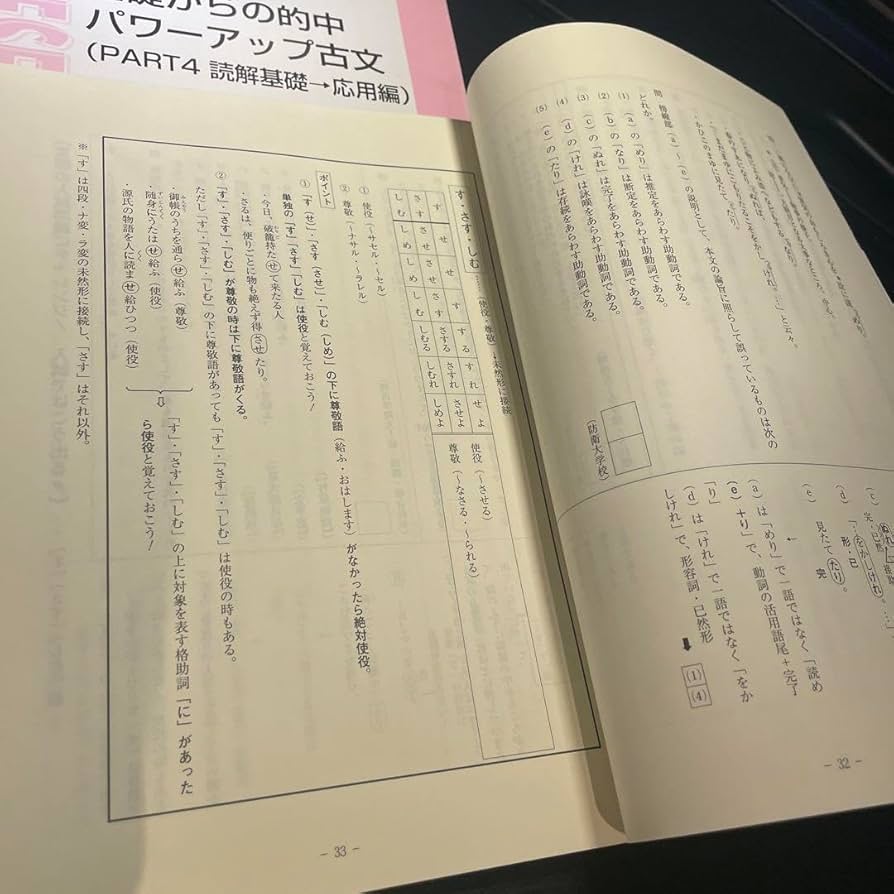 礎からの的中
パワーアップ古文
(PART4 読解基礎→応用編)
問 傍線部(a)～(e)の説明として、本文の論旨に照らして誤っているものは次の
どれか。
(1) (a)の「めり」は推定をあらわす助動詞である。
(2) (b)の「なり」は断定をあらわす助動詞である。
(3) (c)の「ぬれ」は完了をあらわす助動詞である。
(4) (d)の「けれ」は詠嘆をあらわす助動詞である。
(5) (e)の「たり」は存続をあらわす助動詞である。
(防衛大学校)
(d) 「をかしけれ。
形・已
(e) 見たてたり。
完
(a)は「めり」で一語ではなく「読め
(e)+り」で、動詞の活用語尾+完了
「り」
(d)は「けれ」で一語ではなく「をか
しけれ」で、形容詞・已然形
➡ (1)(4)
- 32 -
す・さす・しむ……(使役・尊敬)→未然形に接続
す せ せ す する すれ せよ
さす させ させ さす さする さすれ させよ
しむ しめ しめ しむ しむる しむれ しめよ
使役(～させる)
尊敬(～なさる・～られる)
① 使役(～サセル・～セル)
② 尊敬(～ナサル・～ラレル)
ポイント
① 「す(せ)」・「さす(させ)」・「しむ(しめ)」の下に尊敬語(給ふ・おはします)がなかったら絶対使役。
単独の「す」「さす」「しむ」は使役と覚えておこう!
・今日、破籠持たせて来たる人
・さるは、便りごとに物も絶えず得させたり。
② 「す」・「さす」・「しむ」が尊敬の時は下に尊敬語がくる。
ただし「す」・「さす」・「しむ」の下に尊敬語があっても「す」・「さす」・「しむ」は使役の時もある。
・御帳のうちを通らせ給ふ(尊敬)
・随身にうたはせ給ふ(使役)
・源氏の物語を人に読ませ給ひつつ(使役)
⇨ 「す」・「さす」・「しむ」の上に対象を表す格助詞「に」があった
ら使役と覚えておこう!
※「す」は四段・ナ変・ラ変の未然形に接続し、「さす」はそれ以外。
- 33 -